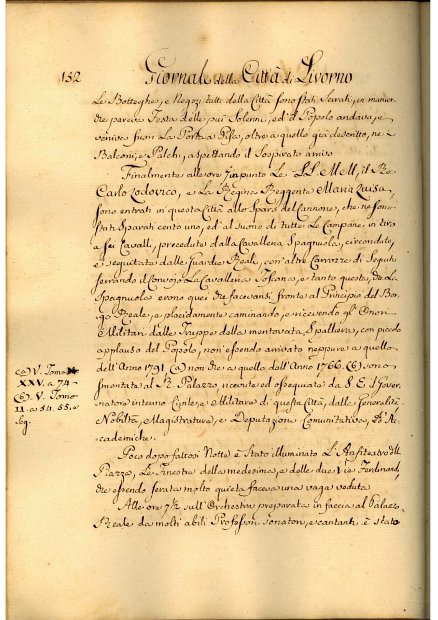 152 Giornale della Città di Livorno
Le Botteghe, e Negozj tutti della Città sono stati Serrati, in manie-
ra che pareva Festa delle più Solenni, ed il Popolo andava, e
veniva fuori La Porta a Pisa, oltre a quello già descritto, ne
Balconi, e Palchi, aspettando il Sospirato arrivo
Finalmente alle ore 7 in punto Le LL. MM., il Re
Carlo Lodovico, e La Regina Reggente Maria Luisa,
sono entrati in questa Città allo Sparo del Cannone, che ne sono
stati Sparati cento uno, ed al suono di tutte Le Campane in tiro
a sei Cavalli, preceduto dalla Cavalleria Spagnuola, circondato,
e seguitato dalle Guardie Reali, con altre Carrozze di Seguito
serrando il Convojo La Cavalleria Toscana, e tanto questa, che La
Spagnuola erono quei che facevansi fronte al Principio del Bor-
go Reale, e placidamente caminando, e ricevendo gl' Onori
Militari dalle Truppe della mentovata Spalliera, con piccolo
applauso del Popolo, non essendo arrivato neppure a quello
dell' Anno 1791 (a) non che a quello dell' Anno 1766. (b), sono
smontati al R. Palazzo, ricevute ed ossequiate da S. E. il Gover-
natore interino Civile, e Militare di questa Città, dalle Generalità
Nobiltà, Magistrature, e Deputazioni Comunitative, ed Ac-
cademiche.
(a) V. Tomo
XXV. a 74-
(b) V. Tomo
II. a 54. 55. e
seg.
Poco dopo fattosi Notte è Stato illuminato L'Anfiteatro di
Piazza, Le Finestre della medesima, e delle due Vie Ferdinande,
che essendo serata molto quieta faceva una vaga veduta
Alle ore 7½ sull' Orchestra preparata in faccia al Palazzo
Reale da molti abili Professori sonatori, e cantanti è stato